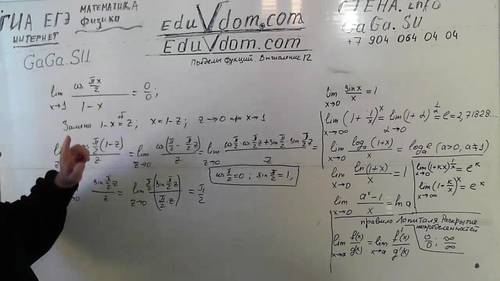 ГИА ЕГЭ
ИНТЕРНЕТ
МАТЕМАТИКА
физика
GaGa.SU
EduVdom.com
EduVdom.com
Пределы функций. Вычисление 12
СТЕНА.info
GaGa.SU
+7 904 064 04 04
lim x→1 cos πx/2 / 1-x = 0/0;
Замена 1-x=z; x=1-z; z→0 при x→1
cos π/2(1-z) / z = lim z→0 cos(π/2 - π/2 z) / z = lim z→0 cos π/2 · cos π/2 z + sin π/2 · sin π/2 z / z =
cos π/2 = 0; sin π/2 = 1,
sin π/2 z / z = lim z→0 π/2 (sin π/2 z / π/2 · z) = π/2
lim x→0 sin x / x = 1
lim x→∞ (1+1/x)^x = lim α→0 (1+α)^1/α = e = 2,71828...
lim x→0 log a (1+x) / x = log a e (a>0, a≠1)
lim x→0 ln(1+x) / x = 1
lim x→0 a^x-1 / x = ln a
lim x→0 (1+kx)^1/x = e^k
lim x→∞ (1+k/x)^x = e^k
правило Лопиталя Раскрытие
неопределенностей
lim x→a f(x)/g(x) = lim x→a f'(x)/g'(x)
0/0, ∞/∞